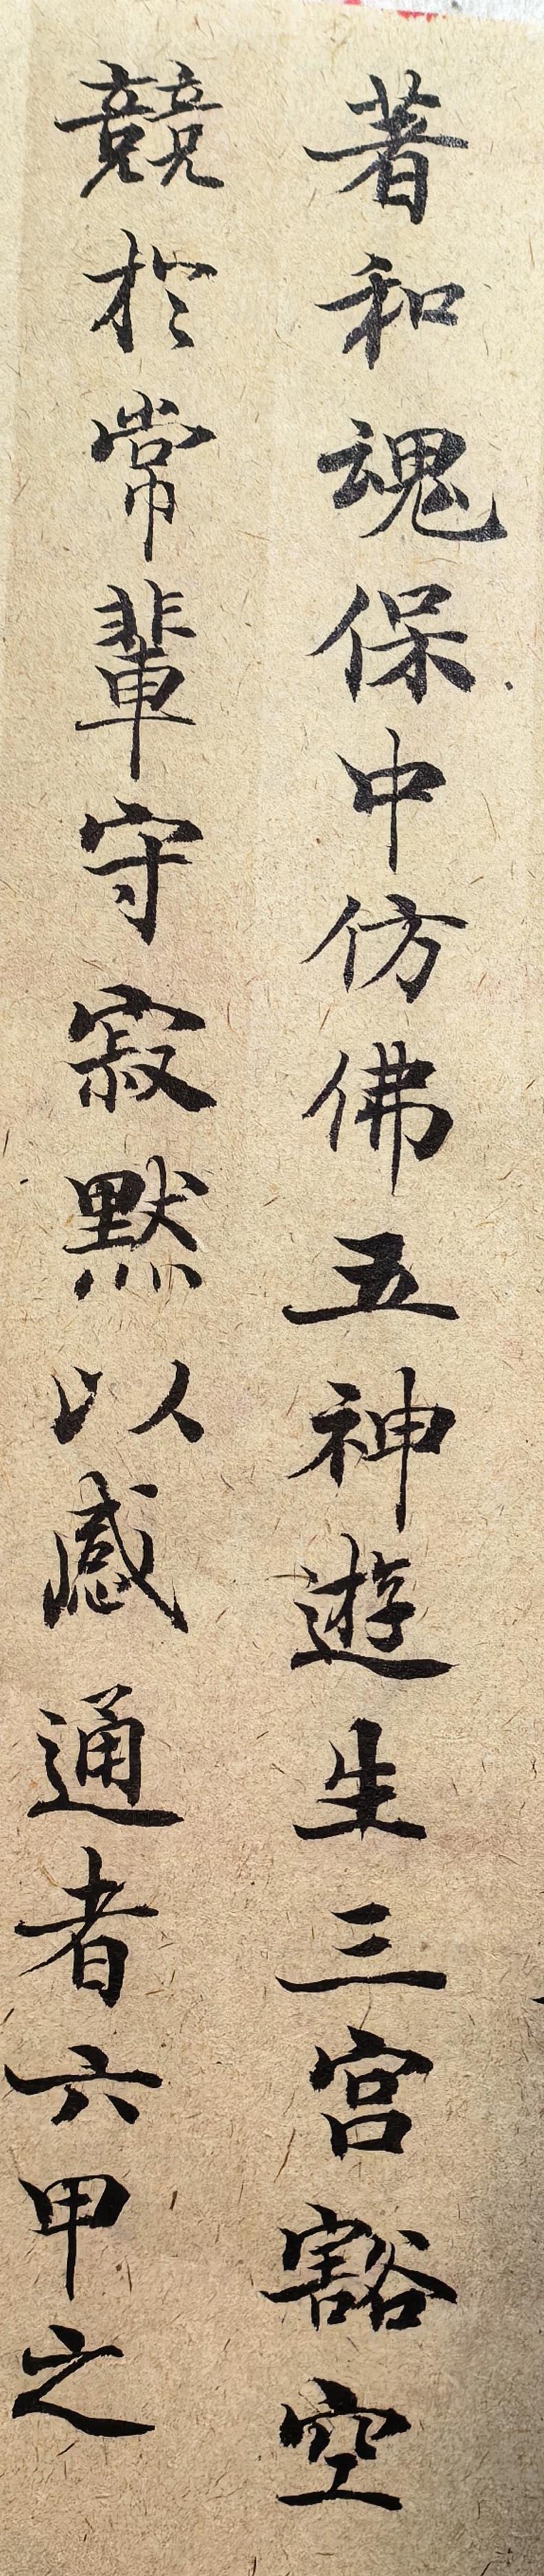 著和魂保中仿佛五神遊生三宮豁空
競於常輩守寂默以感通者六甲之